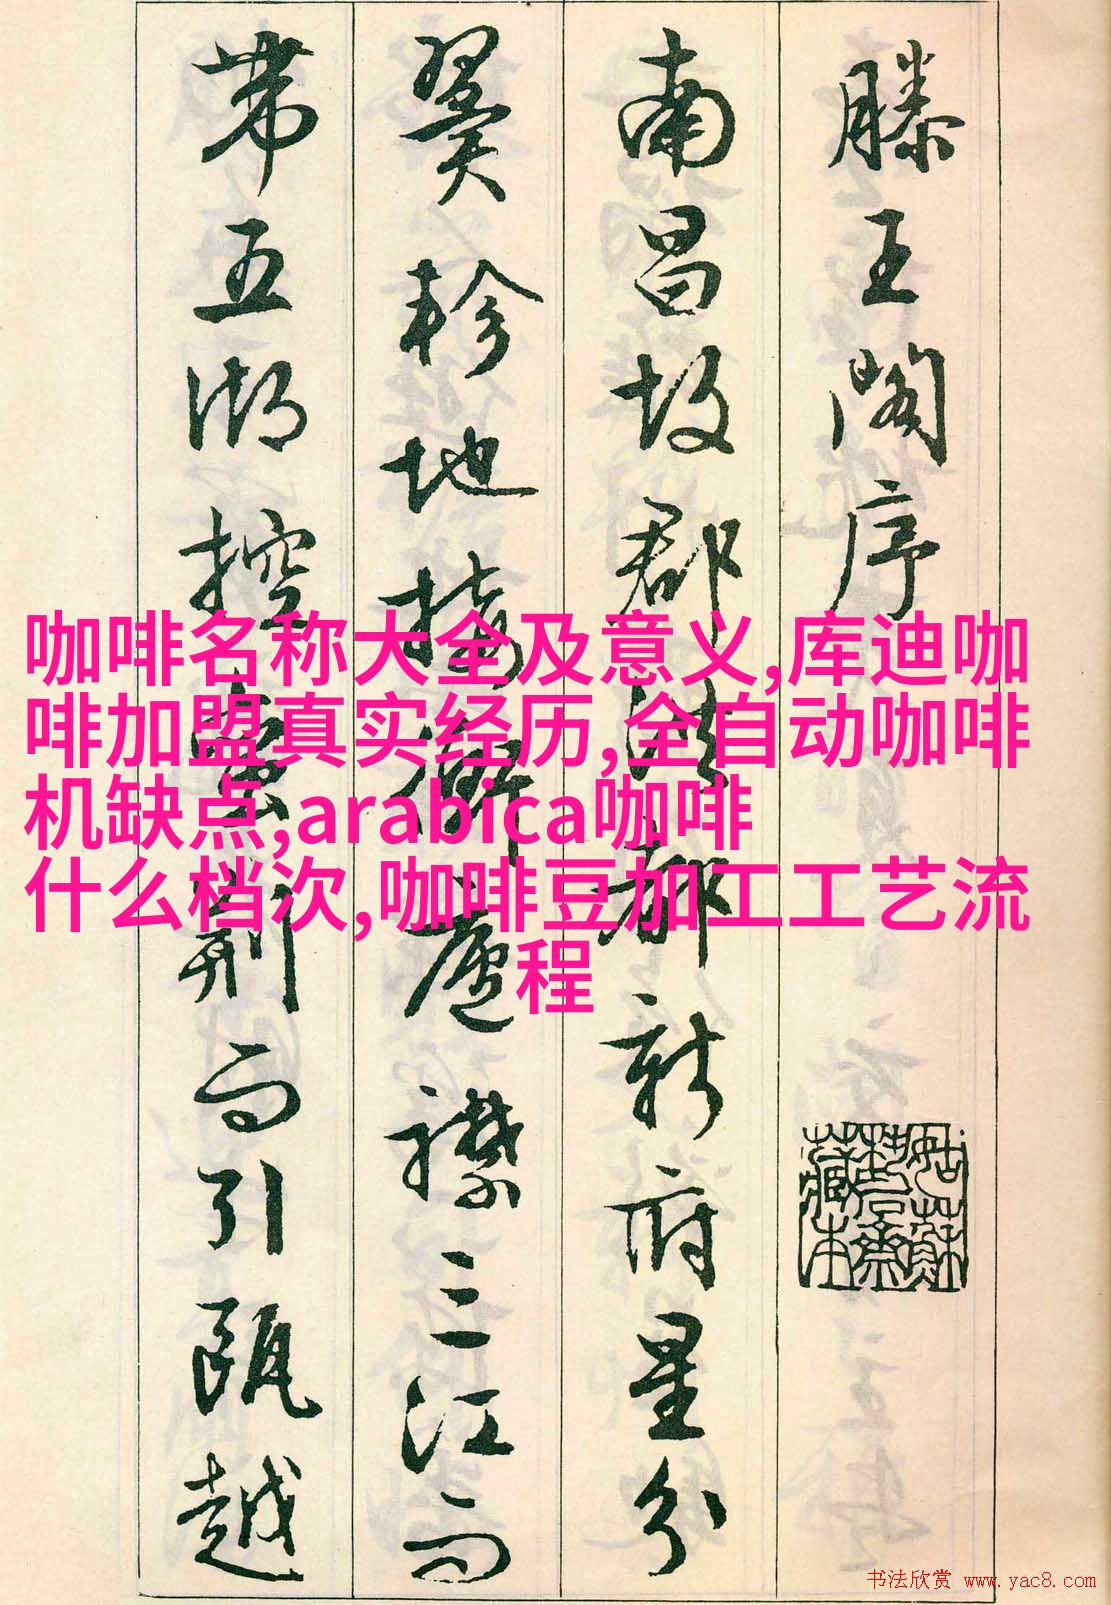 滕王閣序
南昌故郡洪都新府星分
翼軫地接衡廬襟三江而
帶五湖控蠻荊而引甌越
咖啡名称大全及意义,库迪咖
啡加盟真实经历,全自动咖啡
机缺点,arabica咖啡
什么档次,咖啡豆加工工艺流
程
姑蘇
藏本
书法欣赏 www.yac8.com